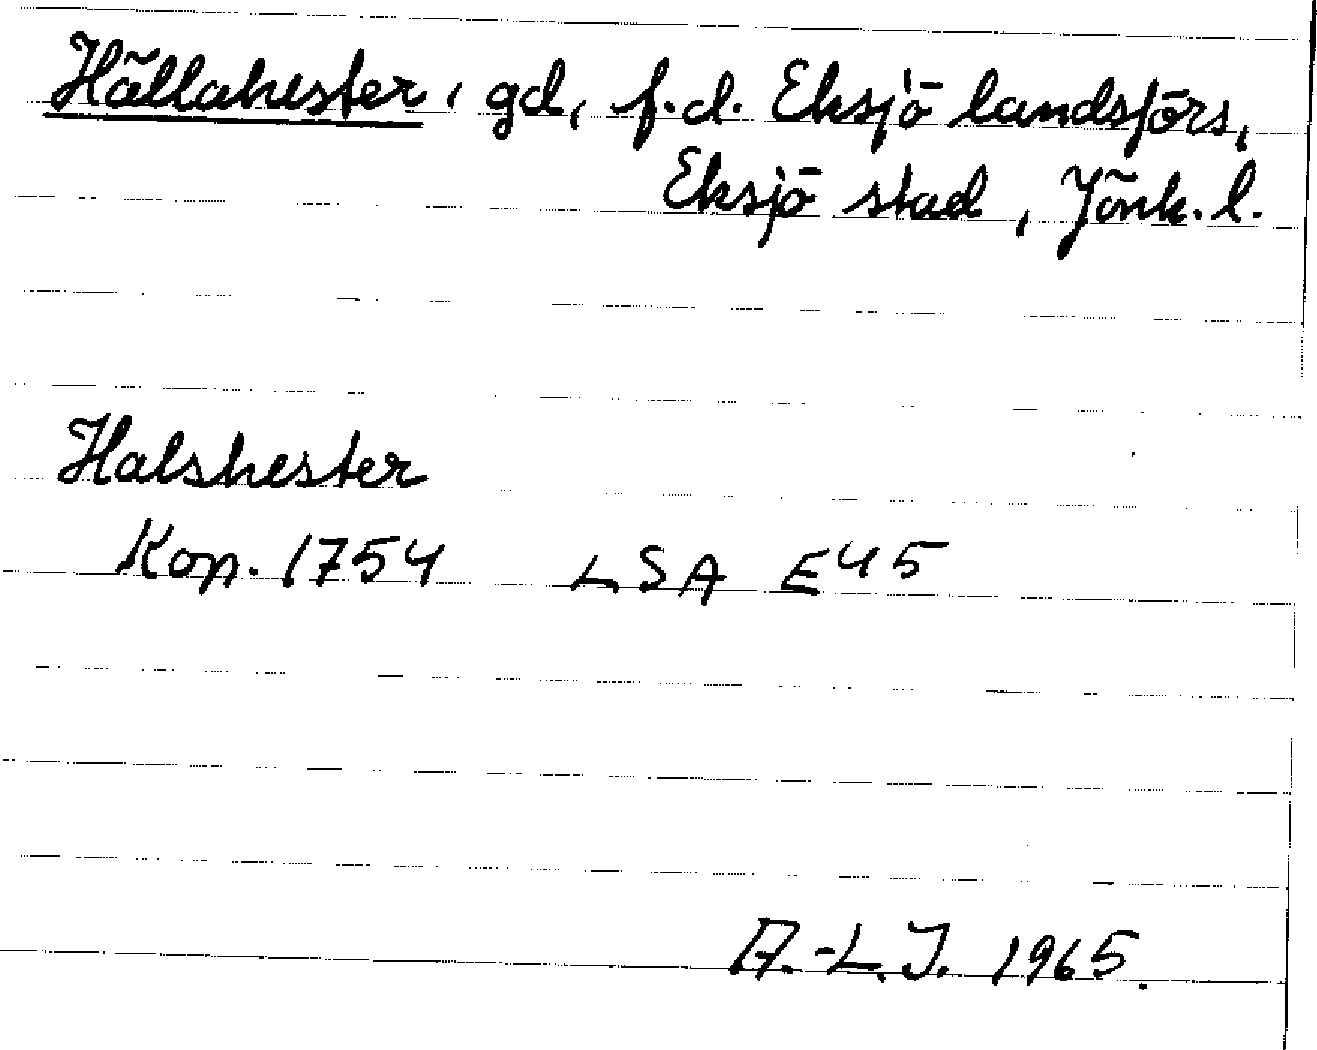 Hällahester, gd, f.d. Eksjö landsförs,
Eksjö stad, Jönk. l.
Halshester
Kop. 1754 LSA E45
A.-L.J. 1965.